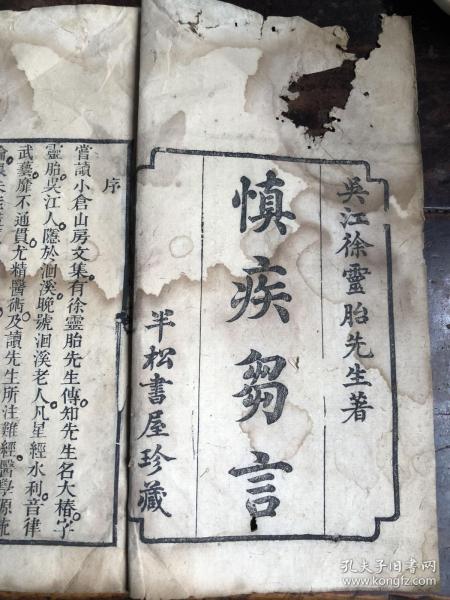 吳江徐靈胎先生著
慎疾芻言
半松書屋珍藏
序
嘗讀小倉山房文集有徐靈胎先生傳知先生名大椿字
靈胎吳江人隱於洄溪晚號洄溪老人凡星經水利音律
武藝靡不通貫尤精醫術及讀先生所注難經醫學源流
孔夫子旧书网
www.kongfz.com